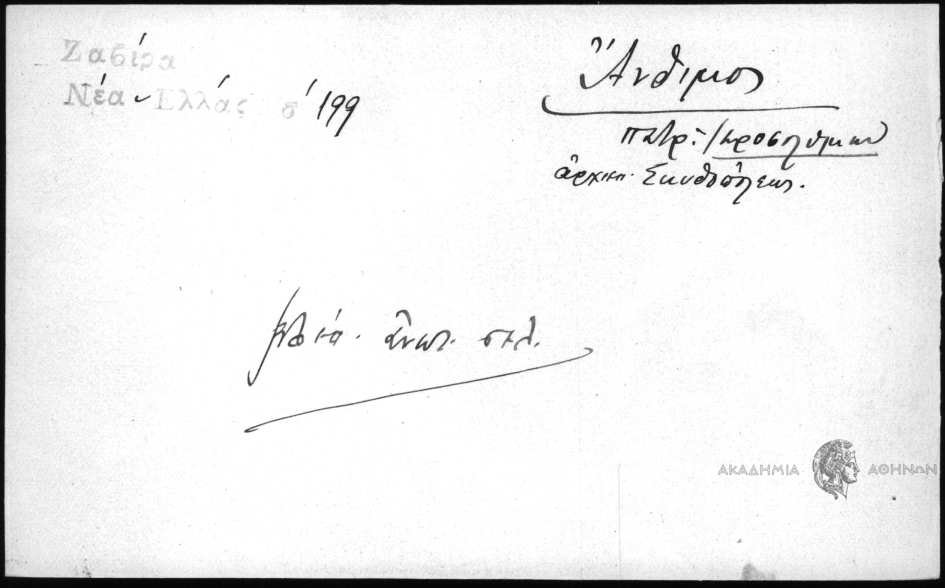 Ζαβίρα
Νέα Ἑλλάς σ 199
Ἄνθιμος
πατρ. Ἱεροσολύμων
ἀρχιεπ. Σκυθοπόλεως.
ἀνωτ. σελ.
ΑΚΑΔΗΜΙΑ ΑΘΗΝΩΝ